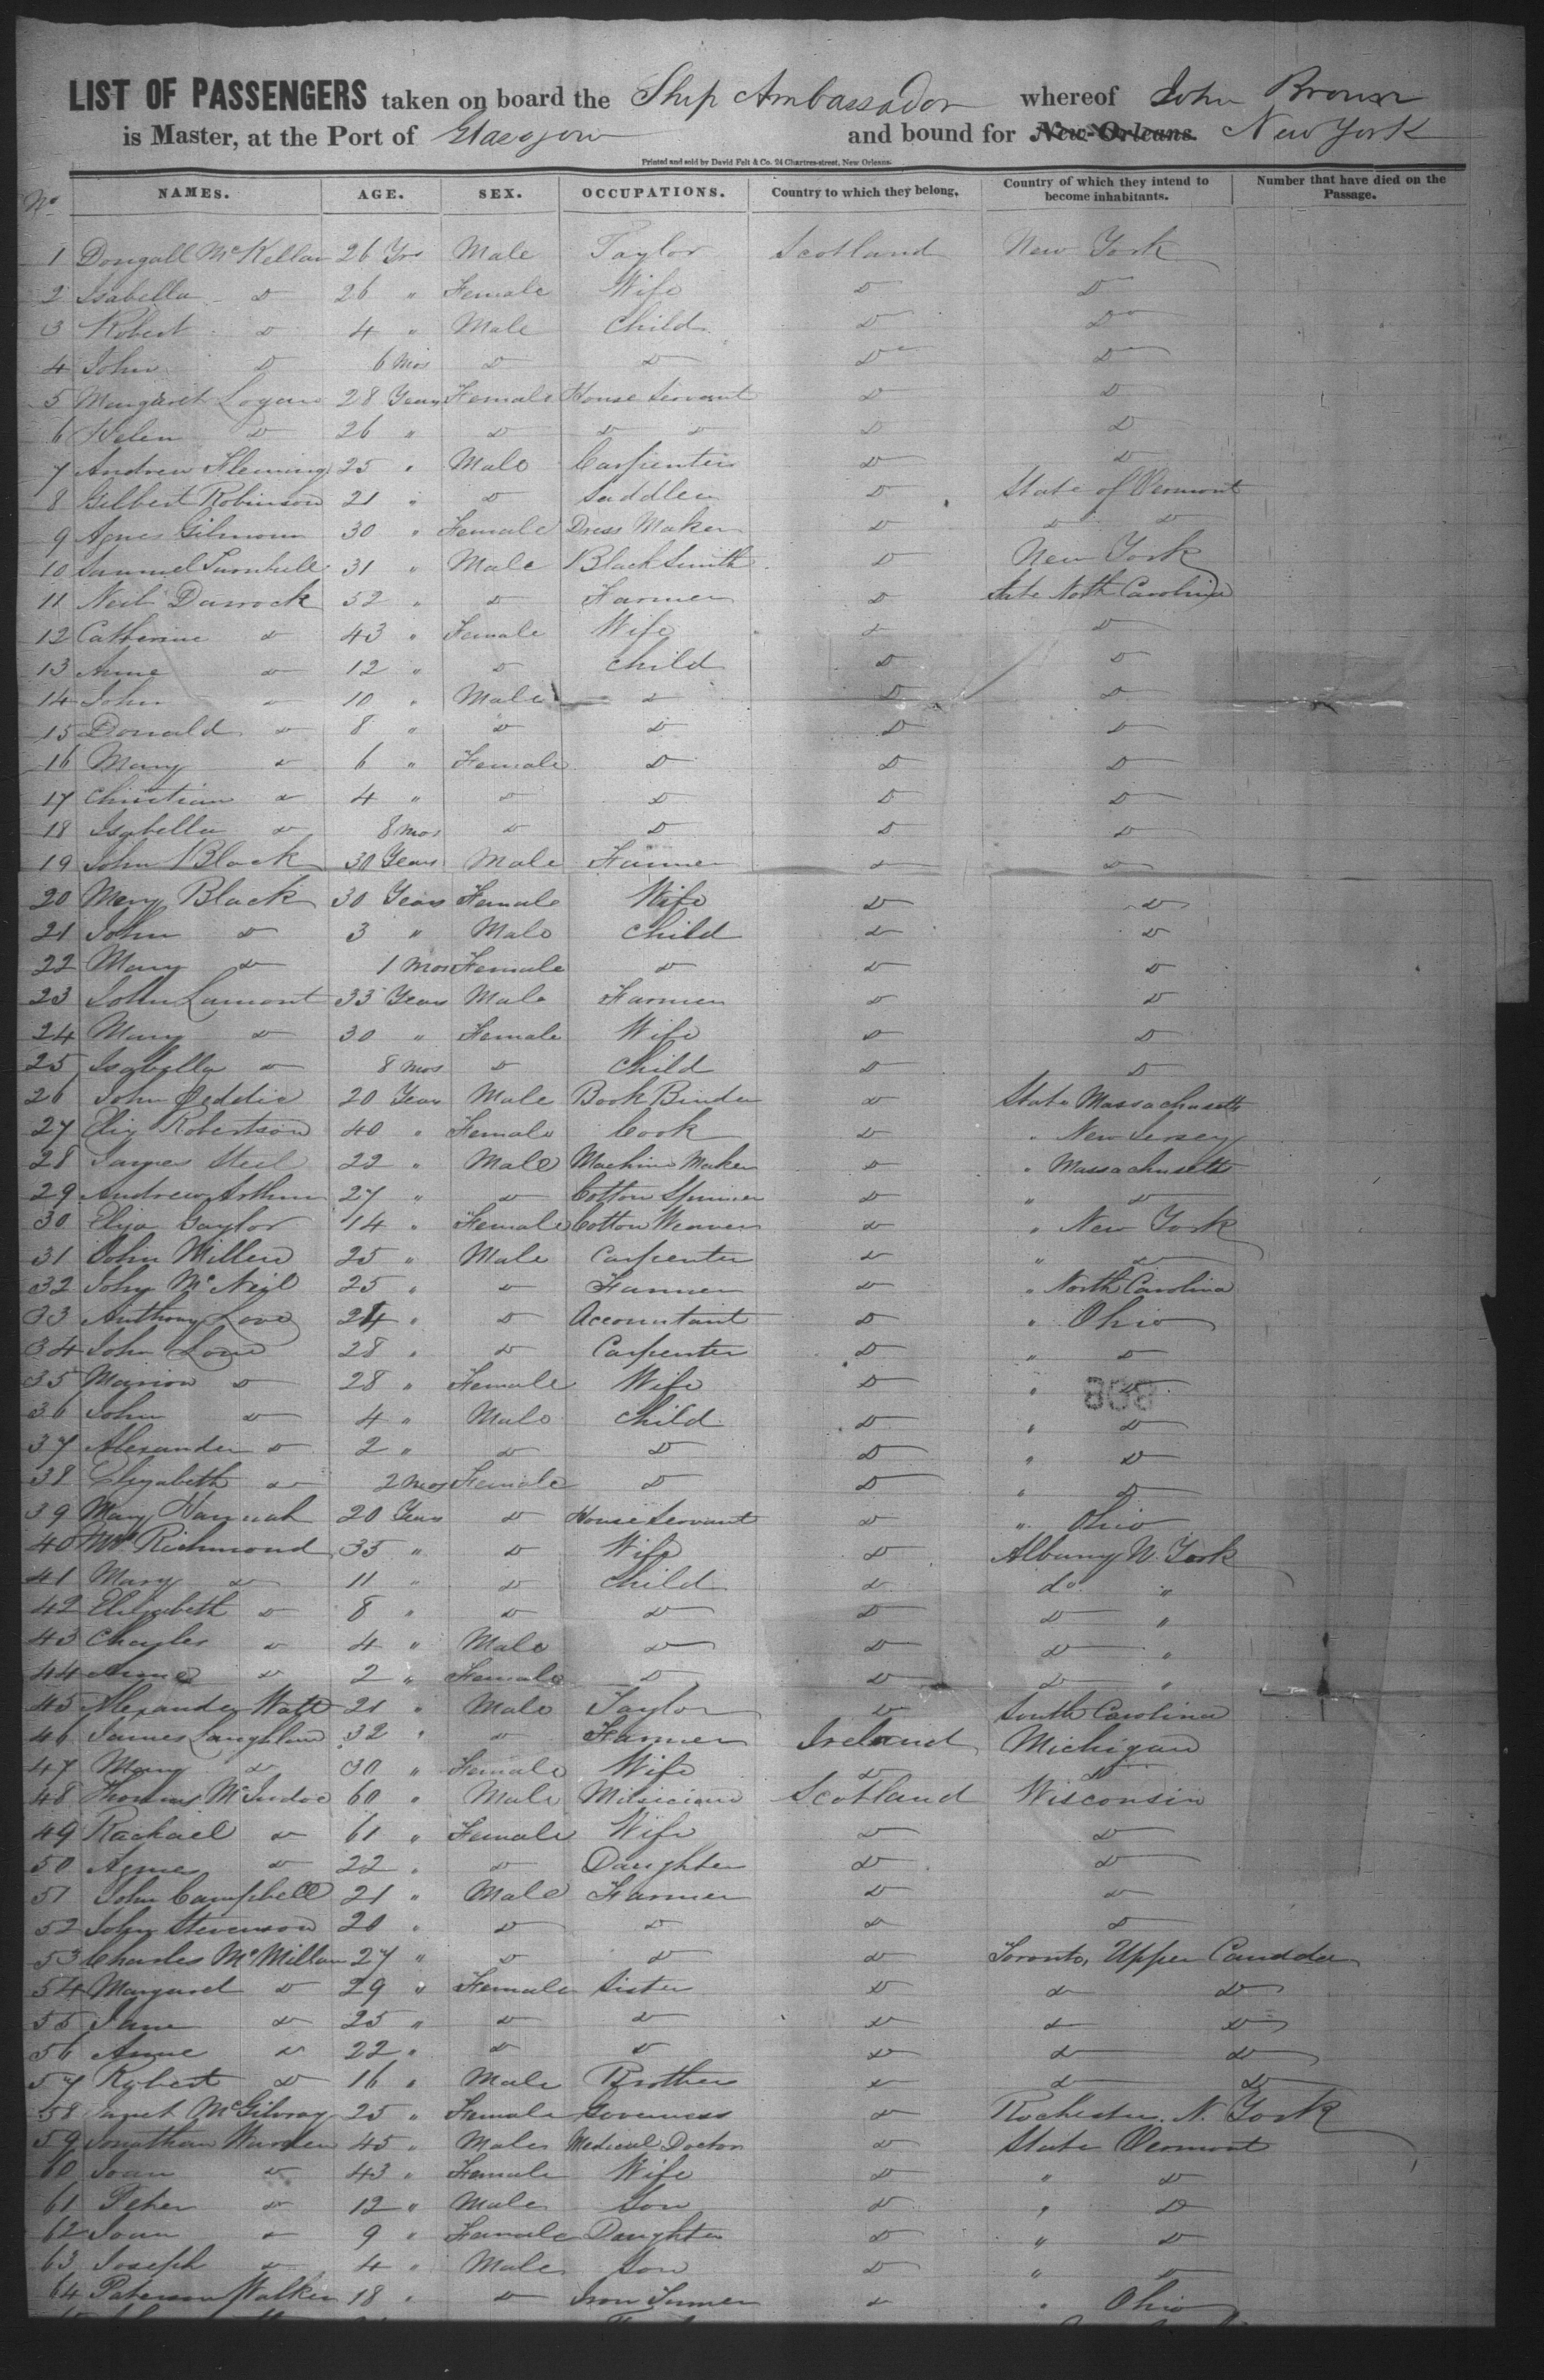 LIST OF PASSENGERS taken on board the Ship Ambassador whereof John Brown
is Master, at the Port of Glasgow and bound for New-Orleans. New York
Printed and sold by David Felt & Co. 24 Chartres-street, New Orleans.
No NAMES. AGE. SEX. OCCUPATIONS. Country to which they belong. Country of which they intend to become inhabitants. Number that have died on the Passage.
1 Dougall McKellar 26 Yrs Male Taylor Scotland New York
2 Isabella Do 26 " Female Wife Do Do
3 Robert Do 4 " Male Child Do Do
4 John Do 6 Mos Do Do Do Do
5 Margaret Logan 28 Years Female House Servant Do Do
6 Helen Do 26 " Do Do Do Do Do
7 Andrew Fleming 25 " Male Carpenter Do Do
8 Gilbert Robinson 21 " Do Saddler Do State of Vermont
9 Agnes Gilmour 30 " Female Dress Maker Do Do Do
10 Samuel Turnbull 31 " Male Black Smith Do New York
11 Neil Darrock 52 " Do Farmer Do State North Carolina
12 Catherine Do 43 " Female Wife Do Do
13 Anne Do 12 " Do Child Do Do
14 John Do 10 " Male Do Do Do
15 Donald Do 8 " Do Do Do Do
16 Mary Do 6 " Female Do Do Do
17 Christian Do 4 " Do Do Do Do
18 Isabella Do 8 mos Do Do Do Do
19 John Black 30 Years Male Farmer Do Do
20 Mary Black 30 Years Female Wife Do Do
21 John Do 3 " Male Child Do Do
22 Mary Do 1 Mos Female Do Do Do
23 John Lamont 33 Years Male Farmer Do Do
24 Mary Do 30 " Female Wife Do Do
25 Isabella Do 8 mos Do Child Do Do
26 John Geddie 20 Years Male Book Binder Do State Massachusetts
27 Eliz Robertson 40 " Female Cook Do " New Jersey
28 James Steel 22 " Male Machine Maker Do " Massachusetts
29 Andrew Arthur 27 " Do Cotton Spinner Do " Do
30 Eliza Taylor 14 " Female Cotton Weaver Do " New York
31 John Miller 25 " Male Carpenter Do " Do
32 John McNeil 25 " Do Farmer Do " North Carolina
33 Anthony Love 24 " Do Accountant Do " Ohio
34 John Love 28 " Do Carpenter Do " Do
35 Marion Do 28 " Female Wife Do " Do
808
36 John Do 4 " Male Child Do " Do
37 Alexander Do 2 " Do Do Do " Do
38 Elizabeth Do 2 mos Female Do Do " Do
39 Mary Hannah 20 Years Do House Servant Do " Ohio
40 Mrs Richmond 35 " Do Wife Do Albany N. York
41 Mary Do 11 " Do Child Do do "
42 Elizabeth Do 8 " Do Do Do Do "
43 Charles Do 4 " Male Do Do Do "
44 Anne Do 2 " Female Do Do Do "
45 Alexander Watt 21 " Male Taylor Do South Carolina
46 James Laughlan 32 " Do Farmer Ireland Michigan
47 Mary Do 30 " Female Wife Do Do
48 Thomas McIndoe 60 " Male Musician Scotland Wisconsin
49 Rachael Do 61 " Female Wife Do Do
50 Agnes Do 22 " Do Daughter Do Do
51 John Campbell 21 " Male Farmer Do Do
52 John Stevenson 20 " Do Do Do Do
53 Charles McMillan 27 " Do Do Do Toronto, Upper Canada
54 Margaret Do 29 " Female Sister Do Do Do
55 Jane Do 25 " Do Do Do Do Do
56 Anne Do 22 " Do Do Do Do Do
57 Robert Do 16 " Male Brother Do Do Do
58 Janet McGilvray 25 " Female Governess Do Rochester N. York
59 Jonathan Warden 45 " Male Medical Doctor Do State Vermont
60 Joan Do 43 " Female Wife Do " Do
61 Peter Do 12 " Male Son Do " Do
62 Joan Do 9 " Female Daughter Do " Do
63 Joseph Do 4 " Male Son Do " Do
64 Paterson Walker 18 " Do Iron Turner Do " Ohio